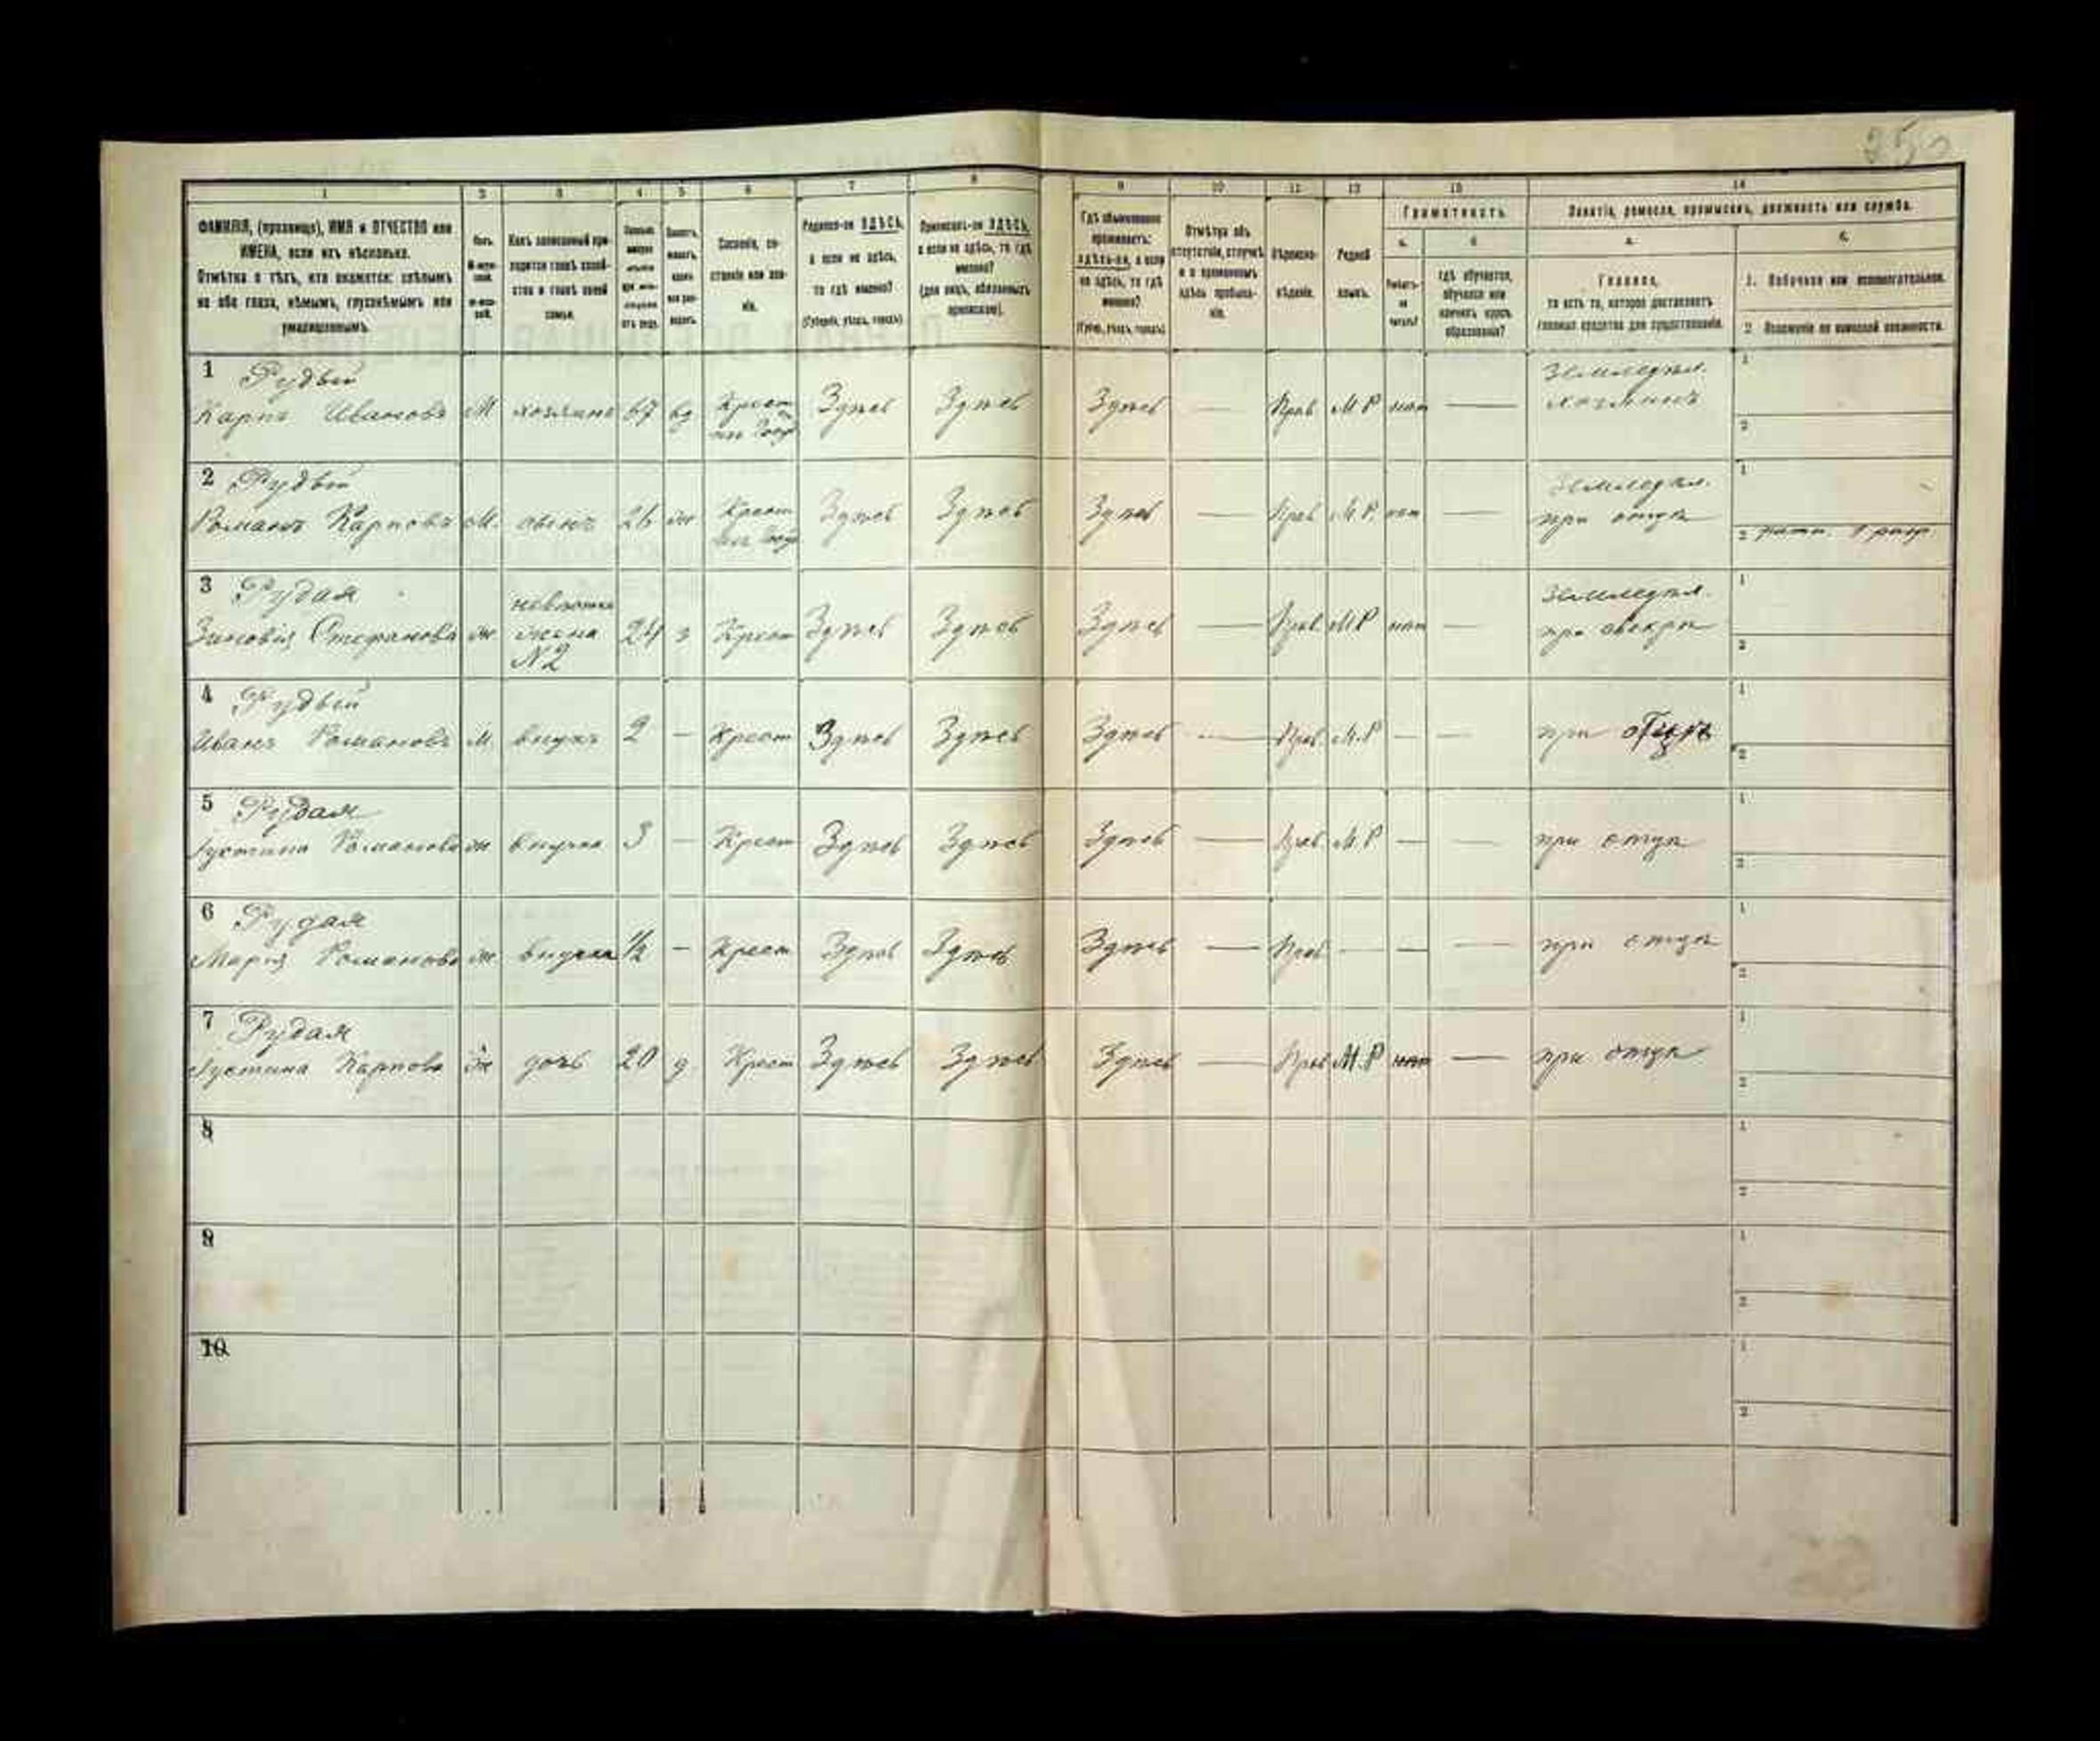 1 2 3 4 5 6 7 8 9 10 11 12 13 14
ФАМИЛІЯ, (прозвище), ИМЯ и ОТЧЕСТВО или
ИМЕНА, если ихъ нѣсколько.
Отмѣтка о тѣхъ, кто окажется: слѣпымъ
на оба глаза, нѣмымъ, глухонѣмымъ или
умалишеннымъ.
Полъ.
Какъ записанный при-
ходится главѣ хозяй-
ства и главѣ своей
семьи.
Сословіе, со-
стояніе или зва-
ніе.
Родился-ли ЗДѢСЬ,
а если не здѣсь,
то гдѣ именно?
(Губернія, уѣздъ, городъ).
Приписанъ-ли ЗДѢСЬ,
а если не здѣсь, то гдѣ
именно?
(для лицъ, обязанныхъ
припискою).
Гдѣ обыкновенно
проживаетъ:
здѣсь-ли, а если
не здѣсь, то гдѣ
именно?
(Губер., уѣздъ, городъ)
Отмѣтка объ
отсутствіи, отлучкѣ
и о временномъ
здѣсь пребыва-
ніи.
Вѣроиспо-
вѣданіе.
Родной
языкъ.
Грамотность.
а. б.
Умѣетъ-
ли
читать?
гдѣ обучается,
обучался или
кончилъ курсъ
образованія?
Занятіе, ремесло, промыселъ, должность или служба.
а.
Главное,
то есть то, которое доставляетъ
главныя средства для существованія.
б.
1. Побочное или вспомогательное.
2. Положеніе по воинской повинности.
1 Рудый
Карпъ Ивановъ М хозяинъ 67 вд Крест. Здѣсь Здѣсь Здѣсь — Прав М Р нѣт — Земледѣл. хозяинъ
1
2
2 Рудый
Романъ Карповъ М. сынъ 26 ж Крест Здѣсь Здѣсь Здѣсь — Прав М.Р. нѣт — Земледѣл. при отцѣ
1
2 ратн. 1 разр.
3 Рудая
Зиновія Стефанова ж невѣстка жена N2 24 з Крест Здѣсь Здѣсь Здѣсь — Прав МР нѣт — Земледѣл. при свекрѣ
1
2
4 Рудый
Иванъ Романовъ М. внукъ 2 — Крест Здѣсь Здѣсь Здѣсь — Прав. М.Р — — при отцѣ
1
2
5 Рудая
Густина Романова ж внучка 3 — Крест Здѣсь Здѣсь Здѣсь — Прав М.Р — — при отцѣ
1
2
6 Рудая
Марія Романова ж внучка 1/2 — Крест Здѣсь Здѣсь Здѣсь — Прав — — — при отцѣ
1
2
7 Рудая
Густина Карпова ж дочь 20 д Крест Здѣсь Здѣсь Здѣсь — Прав М.Р нѣт — при отцѣ
1
2
8
1
2
9
1
2
10
1
2